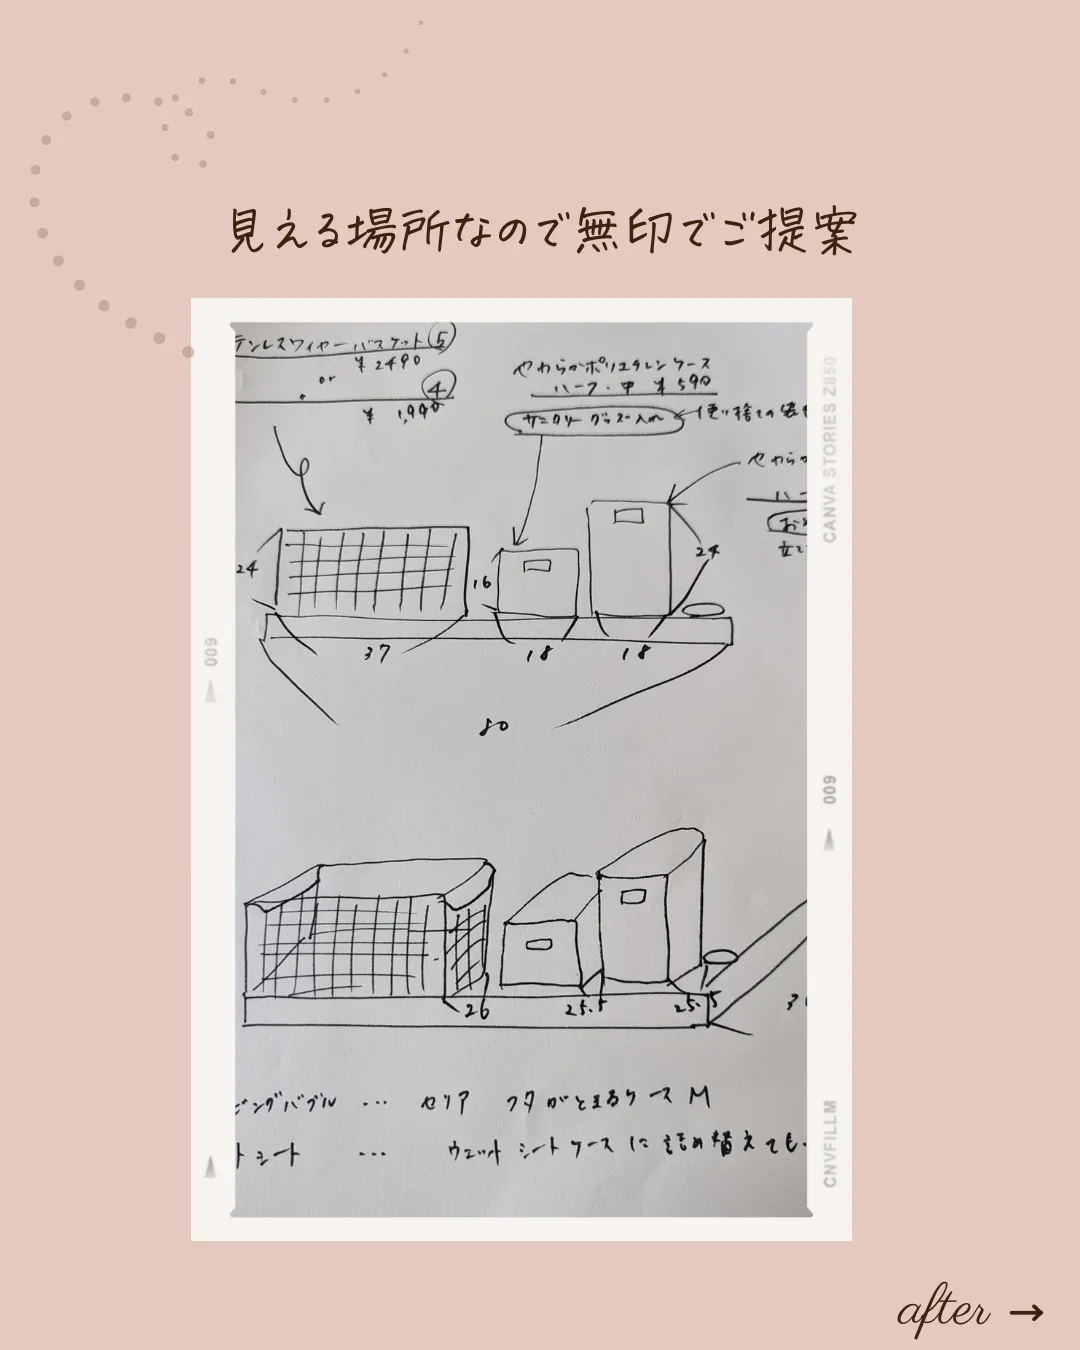 見える場所なので無印でご提案
テンレスワイヤーバスケット⑤
¥2490
or
④
¥1,990
やわらかポリエチレンケース
ハーフ・中 ¥590
サニタリーグッズ入れ
使い捨ての袋も
やわらか
ハー
24
16
24
37
18
18
80
26
25.5
25.5
ピングバブル … セリア フタがとまるケースM
トシート … ウェットシートケースに詰め替えても
CANVA STORIES Z850
009
009
CNVFILLM
after →